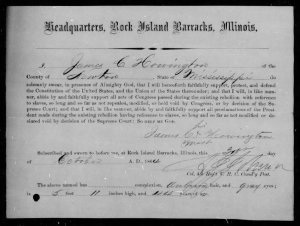 Headquarters, Rock Island Barracks, Illinois.
I James C Howington of the
County of Newton State of Mississippi do
solemnly swear, in presence of Almighty God, that I will henceforth faithfully support, protest, and defend
the Constitution of the United States, and the Union of the States thereunder; and that I will, in like man-
ner, abide by and faithfully support all acts of Congress passed during the existing rebellion with reference
to slaves, so long and so far as not repealed, modified, or held void by Congress, or by decision of the Su-
preme Court; and that I will, in like manner, abide by and faithfully support all proclamations of the Presi-
dent made during the existing rebellion, having reference to slaves, so long and so far as not modified or de-
clared void by decision of the Supreme Court: So help me God.
his
James C x Howington
mark
Subscribed and sworn to before me, at Rock Island Barracks, Illinois, this day
of October A. D., 1864
Col. V. R. C. Comd'g Post.
The above named has complexion, hair, and Gray eyes;
is 5 feet 11 inches high, age